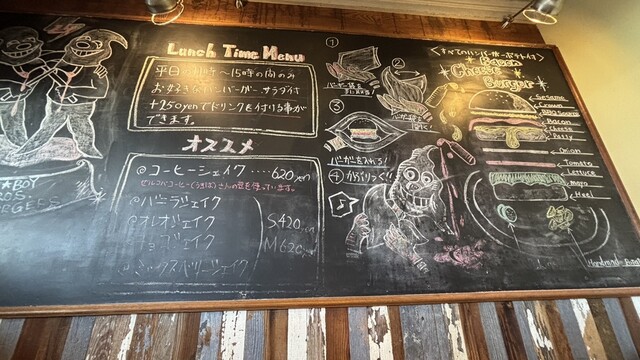 Lunch Time Menu
平日の 〜15時の間のみ
お好きなハンバーガー、サラダ付
+250yenでドリンクを付ける事が
できます。
オススメ
@コーヒーシェイク ････620yen
さんの豆を使っています。
@バニラシェイク
@オレオシェイク
チョコシェイク
@ミックスベリーシェイク
S420yen
M620yen
①
②
③
バーガーを入れる!
④がぶりっく!!
<すべてのハンバーガーポテト付>
Bacon
Cheese
Burger
Sesame
Crown
BBQ Source
Bacon
Cheese
Patty
Onion
Tomato
Lettuce
Mayo
Heel
BOY
BROS.